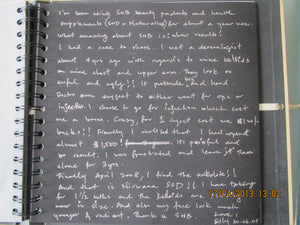 I'm been using SNB beauty products and health
supplements (SOD & Naturelle) for about a year now.
What amazing about SNB is; show results!
I had a case to share. I met a dermatologist
about 4 yrs ago with regards to mine keloids
on mine chest and upper arm. They look so
awful and ugly!! It particular big and hard.
Doctor even suggest to either went for ops or
injection. I chose to go for injection which cost
me a bomb. Crazy, for 1 inject cost me
bucks!! Finally I realised that I had spend
almost $1,500! It's painful and
no result. I was frustrated and leave it there
alone for 3yrs.
Finally April 2008, I find the antidote!!
And that is Nirvana SOD!! I have taking
for 1 1/2 mths and the keloids are
in size. And also my face look much
younger & radiant. Thank u SNB.
Love,
30.06.08
17/03/2013 13:02